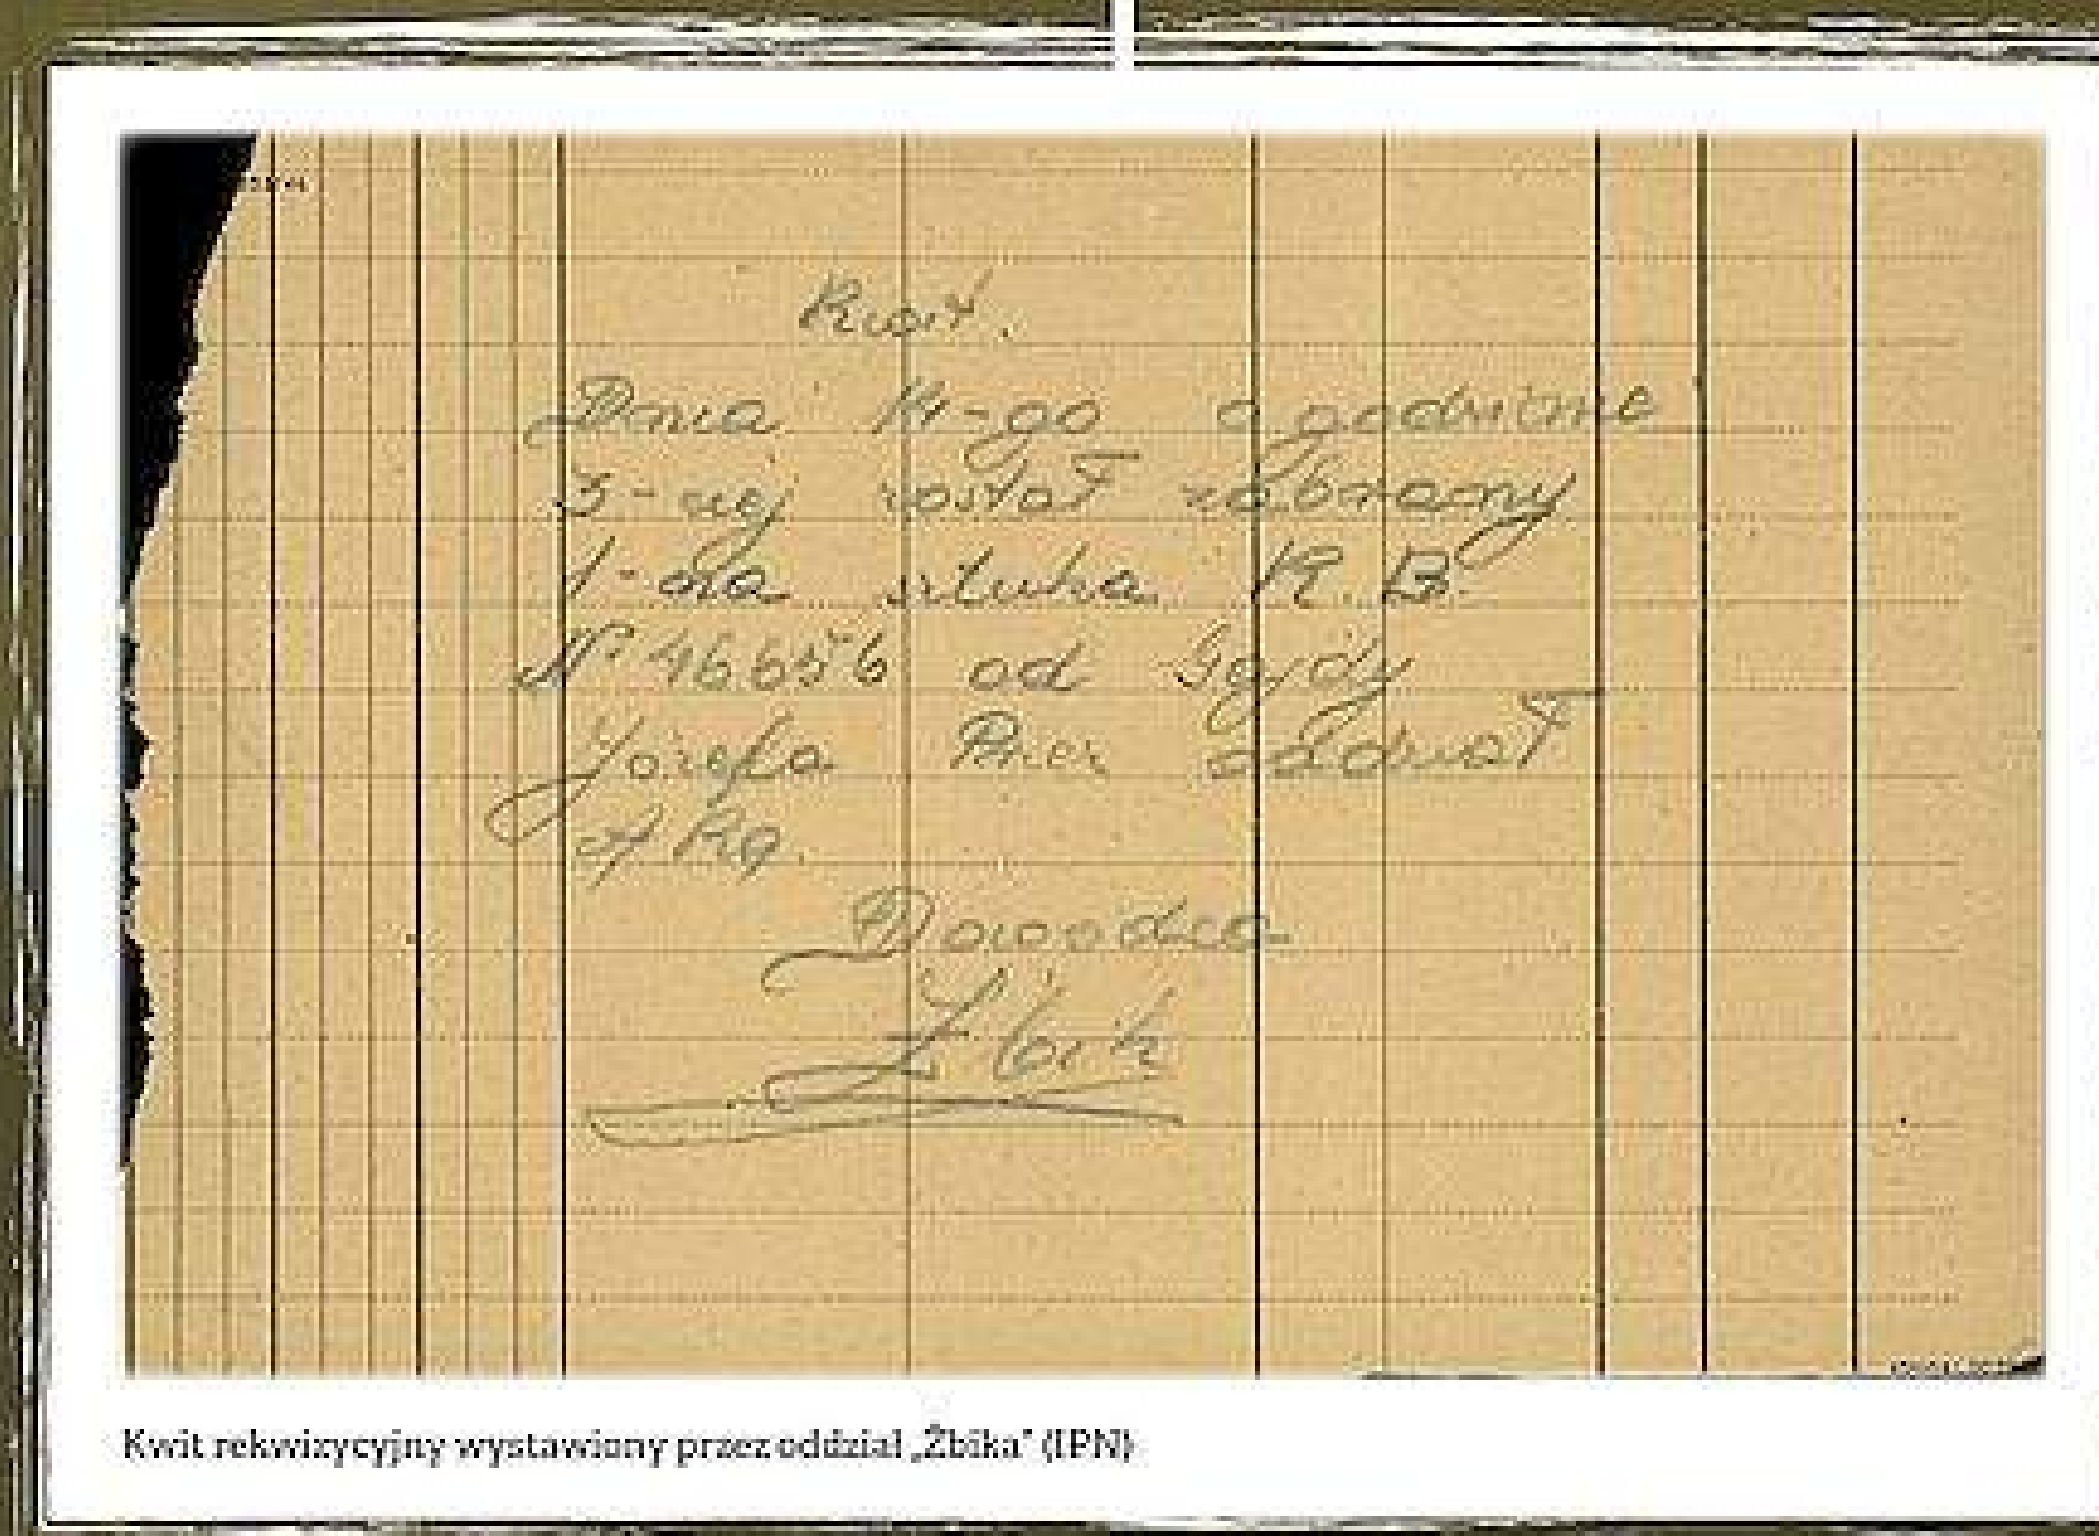 Kwit.
Dnia 14-go o godzinie
3-ciej został zabrany
1-na sztuka K. B.
Nº 46656 od Gajdy
Józefa Przez oddział
A Ką.
Dowódca
Żbik
Kwit rekwizycyjny wystawiony przez oddział „Żbika" (IPN)